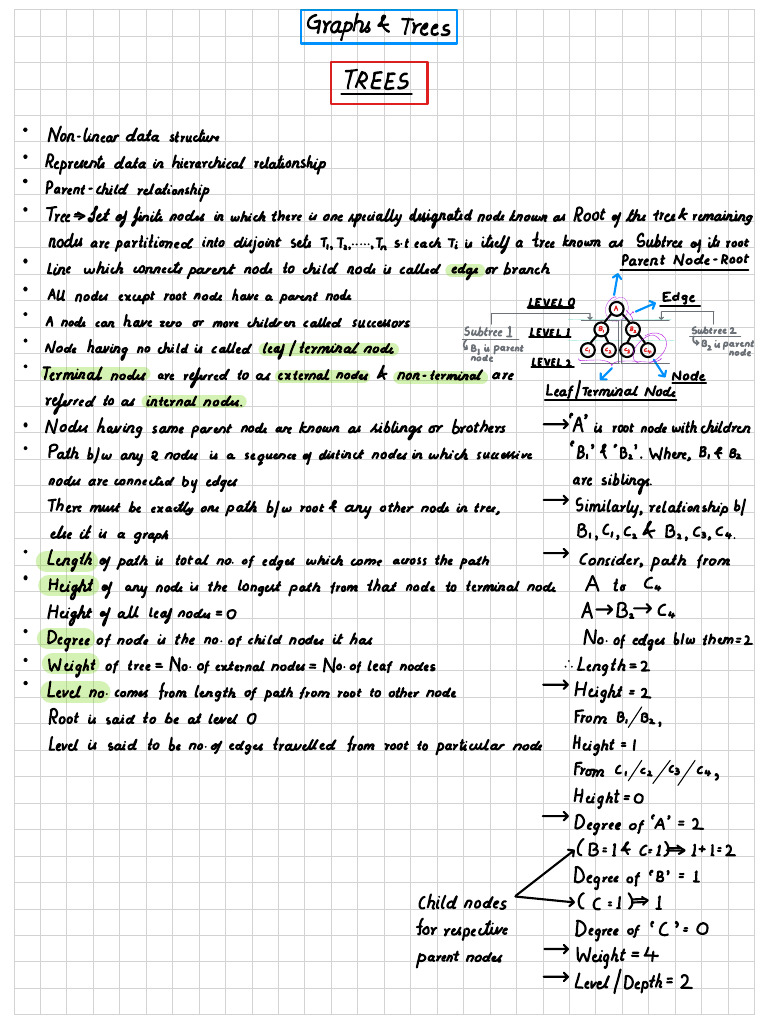 Graphs & Trees
TREES
• Non-linear data structure
• Represents data in hierarchical relationship
• Parent-child relationship
• Tree ⇒ Set of finite nodes in which there is one specially designated node known as Root of the tree & remaining
nodes are partitioned into disjoint sets T₁, T₂, ....., Tₙ s.t each Tᵢ is itself a tree known as Subtree of its root
• Line which connects parent node to child node is called edge or branch
• All nodes except root node have a parent node
• A node can have zero or more children called successors
• Node having no child is called leaf/terminal node
• Terminal nodes are referred to as external nodes & non-terminal are
referred to as internal nodes.
• Nodes having same parent node are known as siblings or brothers
• Path b/w any 2 nodes is a sequence of distinct nodes in which successive
nodes are connected by edges
There must be exactly one path b/w root & any other node in tree,
else it is a graph
• Length of path is total no. of edges which come across the path
• Height of any node is the longest path from that node to terminal node
Height of all leaf nodes = 0
• Degree of node is the no. of child nodes it has
• Weight of tree = No. of external nodes = No. of leaf nodes
• Level no. comes from length of path from root to other node
Root is said to be at level 0
Level is said to be no. of edges travelled from root to particular node
Parent Node-Root
LEVEL 0
A
Edge
Subtree 1
↳ B₁ is parent
node
LEVEL 1
B₁
B₂
Subtree 2
↳ B₂ is parent
node
LEVEL 2
C₁
C₂
C₃
C₄
Node
Leaf/Terminal Node
→ 'A' is root node with children
'B₁' & 'B₂'. Where, B₁ & B₂
are siblings.
→ Similarly, relationship b/
B₁, C₁, C₂ & B₂, C₃, C₄.
→ Consider, path from
A to C₄
A → B₂ → C₄
No. of edges b/w them = 2
∴ Length = 2
→ Height = 2
From B₁/B₂,
Height = 1
From C₁/C₂/C₃/C₄,
Height = 0
→ Degree of 'A' = 2
(B = 1 & C = 1) ⇒ 1+1 = 2
Degree of 'B' = 1
(C = 1) ⇒ 1
Degree of 'C' = 0
Child nodes
for respective
parent nodes
→ Weight = 4
→ Level/Depth = 2